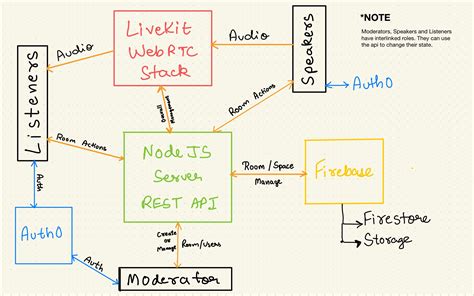 LiveKit
WebRTC
Stack
Audio
Audio
Listeners
Speakers
*NOTE
Moderators, Speakers and Listeners
have interlinked roles. They can use
the api to change their state.
Auth0
Room Actions
Room Actions
Overall
Management
NodeJS
Server
REST API
Room / Space
Manage
Firebase
Firestore
Storage
Auth
Auth0
Auth
Create
or
Manage
Room/Users
Moderator